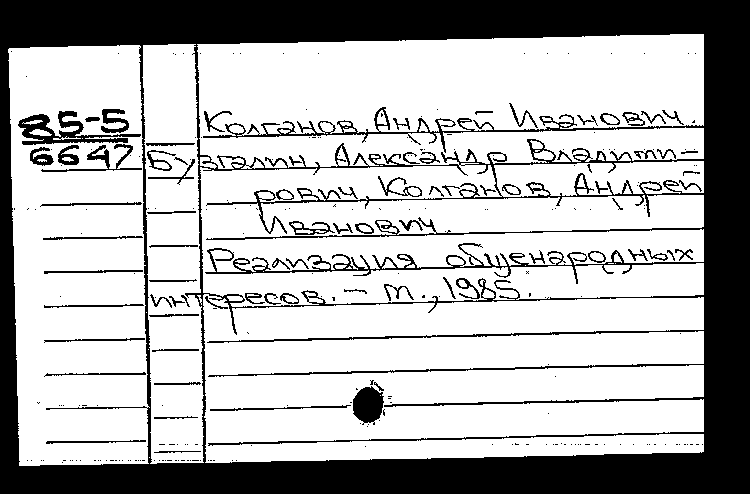 85-5
6647
Колганов, Андрей Иванович.
Бузгалин, Александр Владими-
рович, Колганов, Андрей
Иванович.
Реализация общенародных
интересов. – М., 1985.